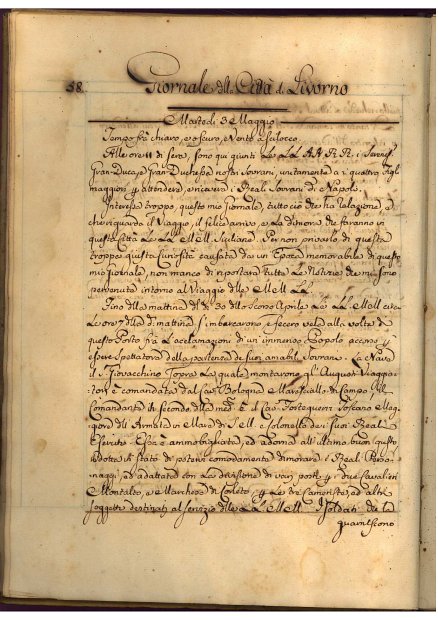 58.
Giornale della Città di Livorno
Martedì 3 Maggio
Tempo frà chiaro, e oscuro, Vento a Scilocco.
Alle ore 11 di sera, sono qui giunti Le LL. AA. RR. i Seremi
Gran-Duca, e Gran Duchessa nostri Sovrani, unitamente a i quattro figli
maggiori, p attendere, e ricevere i Reali Sovrani di Napoli.
Interessa troppo, questo mio Giornale, tutto ciò che ha relazione, e
che riguarda il Viaggio, il felice arrivo, e La dimora che faranno in
questa Città Le LL. MM. Siciliane. Per non privarlo di questa
troppo giusta curiosità causata da un Epoca memorabile di questo
mio giornale, non manco di riportare tutte Le Notizie che mi sono
pervenute intorno al Viaggio delle MM. LL.
Fino dalla mattina del dì 30 dello scorso Aprile Le LL. MM. circa
Le ore 7 della d. mattina s'imbarcarono, e fecero vela alla volta di
questo Porto frà L'acclamazioni di un immenso Popolo accorso p
essere spettatore della partenza de suoi amabili Sovrani. La Nave
il S. Giovacchino sopra La quale montarono gl'Augusti Viaggia-
tori è comandata dal Cav. Bologna Maresciallo di Campo, Il
Comandante in secondo della med. è il Cav. Forteguerri Toscano Mag-
giore dell'Armata in Mare di S. M. e Colonnello de suoi Reali
Eserciti. Essa è ammobigliata, ed adorna all'ultimo buon gusto,
ridotta in stato di potervi comodamente dimorare i Reali Perso-
naggi, ed adattata con La divisione di vari posti p i due Cavalieri
Montalto, e Marchese di Corleto, p Le tre Cameriste, ed altri
soggetti destinati al servizio delle LL. MM. I Soldati che la
guarniscono